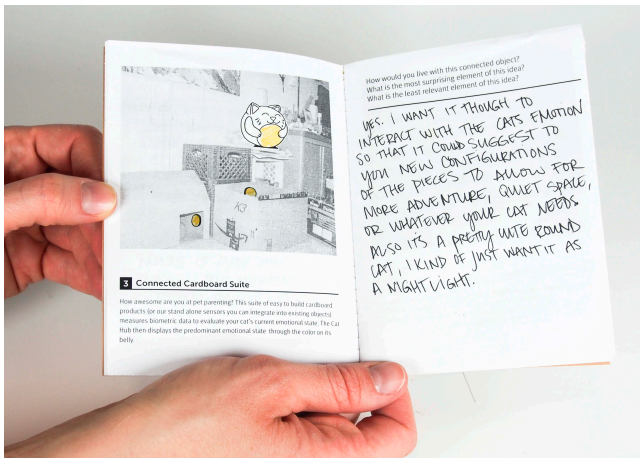 3 Connected Cardboard Suite
How awesome are you at pet parenting? This suite of easy to build cardboard
products (or our stand alone sensors you can integrate into existing objects)
measures biometric data to evaluate your cat's current emotional state. The Cat
Hub then displays the predominant emotional state through the color on its
belly.
How would you live with this connected object?
What is the most surprising element of this idea?
What is the least relevant element of this idea?
YES. I WANT IT THOUGH TO
INTERACT WITH THE CATS EMOTION
SO THAT IT COULD SUGGEST TO
YOU NEW CONFIGURATIONS
OF THE PIECES TO ALLOW FOR
MORE ADVENTURE, QUIET SPACE,
OR WHATEVER YOUR CAT NEEDS
ALSO ITS A PRETTY CUTE ROUND
CAT, I KIND OF JUST WANT IT AS
A NIGHTLIGHT.